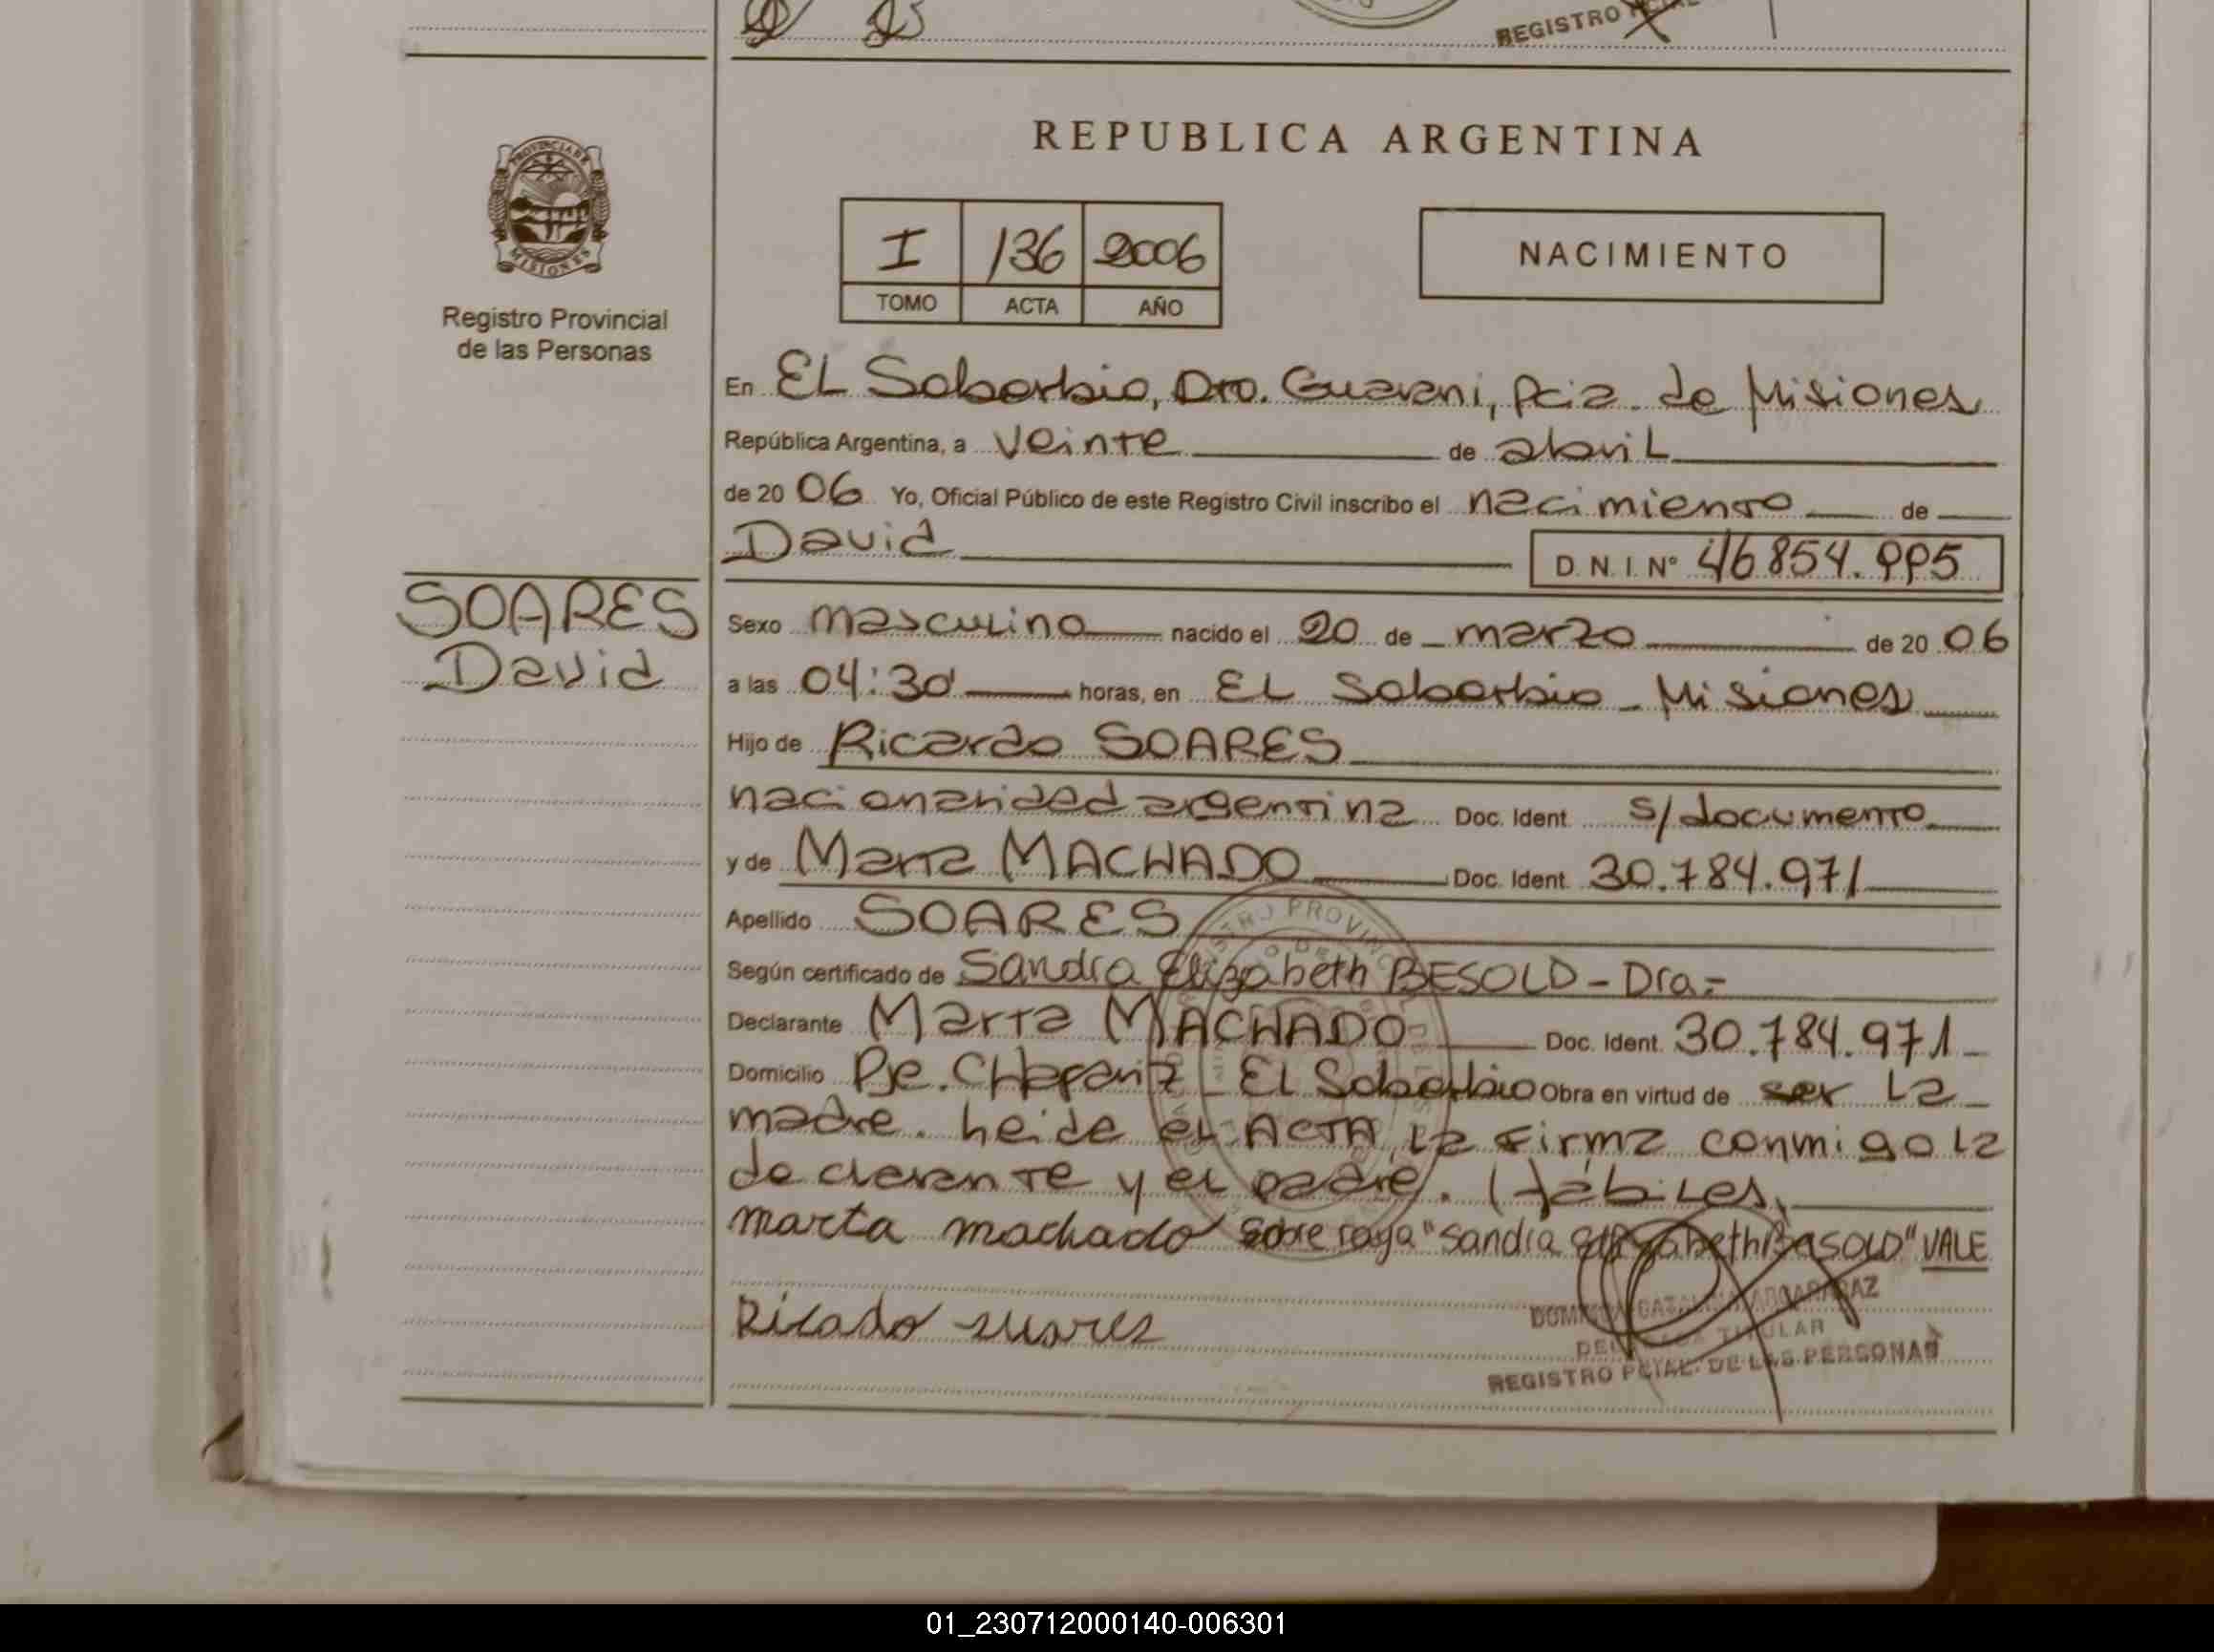 REGISTRO
REPUBLICA ARGENTINA
PROVINCIA DE
MISIONES
Registro Provincial
de las Personas
I 136 2006
TOMO ACTA AÑO
NACIMIENTO
En EL Soberbio, Dto. Guarani, Pcia. de Misiones
República Argentina, a veinte de abril
de 2006 Yo, Oficial Público de este Registro Civil inscribo el nacimiento de
David
D.N.I. Nº 46854.995
SOARES
David
Sexo masculino nacido el 20 de marzo de 2006
a las 04:30' horas, en EL Soberbio - Misiones
Hijo de Ricardo SOARES
nacionalidad argentina Doc. Ident. s/documento
y de Marta MACHADO Doc. Ident. 30.784.971
Apellido SOARES
Según certificado de Sandra Elizabeth BESOLD - Dra.-
Declarante Marta MACHADO Doc. Ident. 30.784.971-
Domicilio Pje. - EL Soberbio Obra en virtud de ser La
madre. Leida el ACTA, la firma conmigo la
declarante y el padre. Hábiles,
marta machado sobre raya "Sandra Elizabeth BASOLD" VALE
Ricado suares
TITULAR
REGISTRO PCIAL. DE LAS PERSONAS
01_230712000140-006301